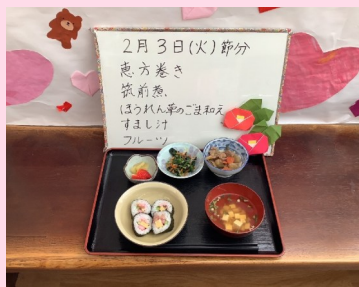 2月3日(火)節分
恵方巻き
筑前煮
ほうれん草のごま和え
すまし汁
フルーツ